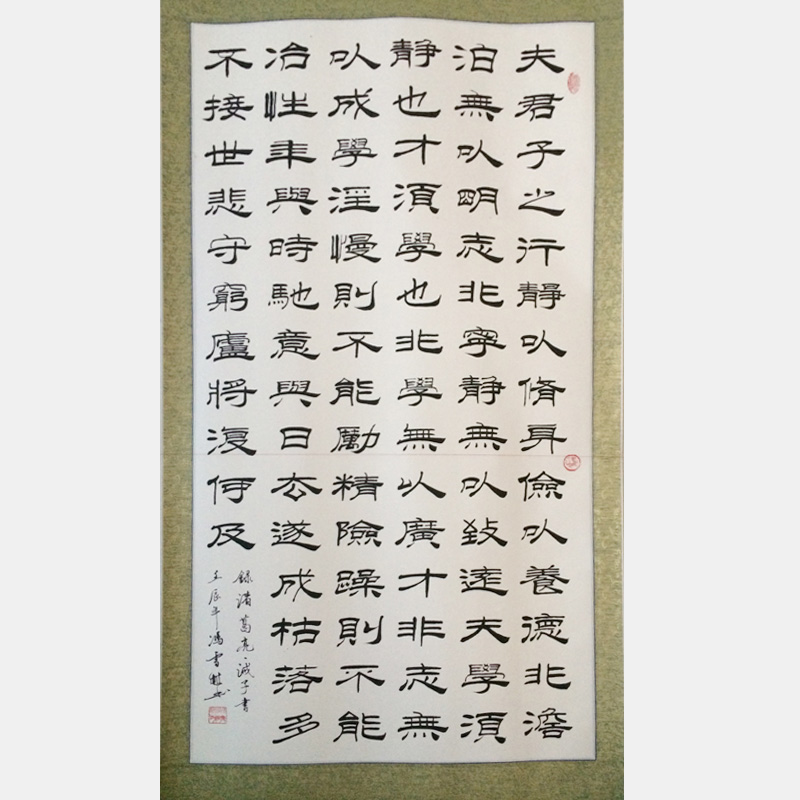 夫君子之行靜以脩身儉以養德非澹
泊無以明志非寧靜無以致遠夫學須
靜也才須學也非學無以廣才非志無
以成學淫慢則不能勵精險躁則不能
冶性年與時馳意與日去遂成枯落多
不接世悲守窮廬將復何及
錄諸葛亮·誡子書
壬辰年馮雪